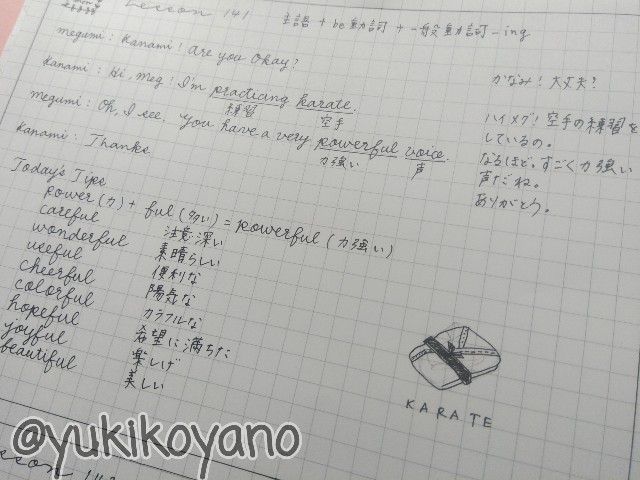 Lesson 141
主語 + be動詞 + 一般動詞-ing
megumi: Kanami! Are you okay?
かなみ! 大丈夫?
Kanami: Hi, Meg! I'm practicing karate.
練習 空手
ハイメグ! 空手の練習を
しているの。
megumi: Oh, I see. You have a very powerful voice.
力強い 声
なるほど。すごく力強い
声だね。
Kanami: Thanks.
ありがとう。
Today's Tips
power (力) + ful (多い) = powerful (力強い)
careful 注意深い
wonderful 素晴らしい
useful 便利な
cheerful 陽気な
colorful カラフルな
hopeful 希望に満ちた
joyful 楽しげ
beautiful 美しい
KARATE
@yukikoyano